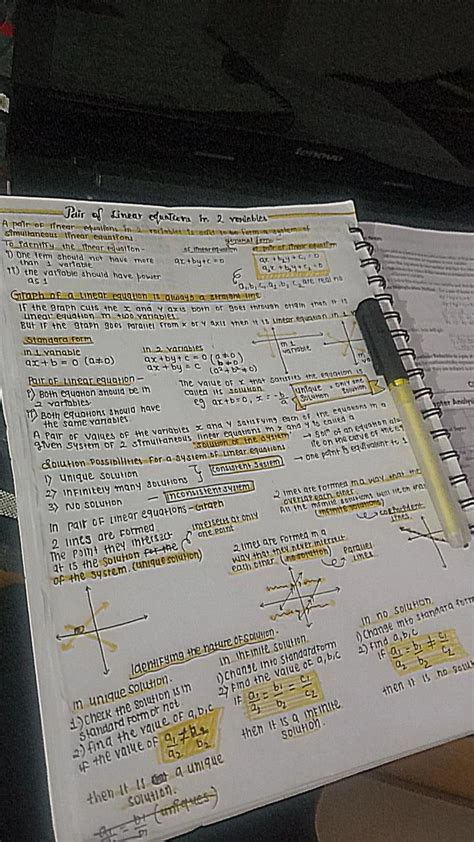 lenovo
Pair of Linear equations in 2 variables
A pair of linear equations in 2 variables is said to be form a system of
simultaneous linear equations
To Identify the linear equation -
general form -
of linear equation
1) One term should not have more
than 1 variable
ax+by+c=0
a₁x + b₁y + c₁ = 0
a₂x + b₂y + c₂ = 0
11) the variable should have power
as 1
a₁, b₁, c₁, a₂, b₂, c₂ are real no
Graph of a linear equation is always a straight line
If the graph cuts the x and y axis both or goes through origin then it is
linear equation in two variables.
But if the graph goes parallel from x or y axis then it is linear equation in 1 v
Standard form
in 1 variable
ax + b = 0 (a≠0)
in 2 variables
ax + by + c = 0 (a≠0)
ax + by = c (b≠0)
in 1
variable
Pair of Linear equation -
1) Both equation should be in
2 variables
11) Both equations should have
the same variables
The value of x that satisfies the equation is
called its solution
eg ax+b=0, x = -b/a
unique = only one
solution solution
A Pair of values of the variables x and y satisfying each of the equations in a
given system of 2 simultaneous linear equations in x and y is called a
solution of the system
Solution Possibilities for a System of Linear equations
1) Unique solution
2) Infinitely many solutions
consistent system
3) No solution - Inconsistent system
→ one point is equivalent to 1
In pair of Linear equations - Graph
2 lines are formed
The point they intersect
at is the solution for the
of the system (unique solution)
intersects at only
one point
2 lines are formed in a
way that they never intersect
each other (no solution)
Parallel
lines
2 lines are formed in a way that the
overlap each other
All the infinite solutions will lie on that
(infinite solutions)
lines
Identifying the nature of solution -
in unique solution.
1) check the solution is in
standard form or not
2) find the value of a, b, c
if the value of a₁/a₂ ≠ b₁/b₂
then it is a unique
solution.
in infinite solution
1) change into standard form
2) find the value of a, b, c
if a₁/a₂ = b₁/b₂ = c₁/c₂
then it is a infinite
solution.
in no solution
1) Change into standard form
2) find a, b, c
if a₁/a₂ = b₁/b₂ ≠ c₁/c₂
then it is no solu